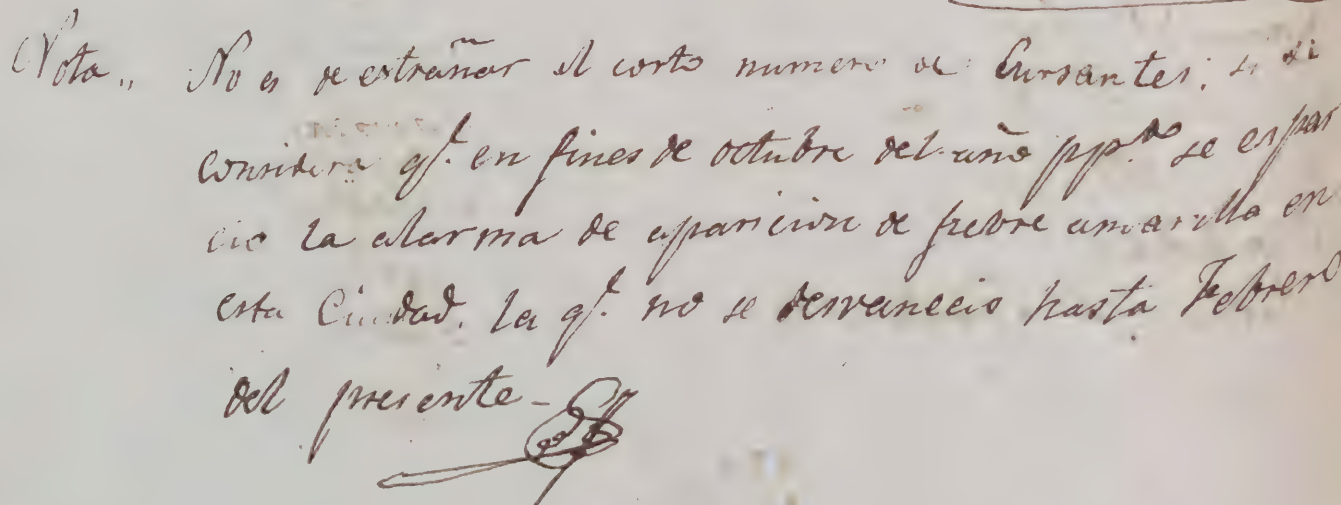 Nota,, No es de estrañar el corto numero de Cursantes; si se
considera q.e en fines de octubre del año pp.do se espar
cio la alarma de aparicion de fiebre amarilla en
esta Ciudad, la q.e no se desvanecio hasta Febrero
del presente-